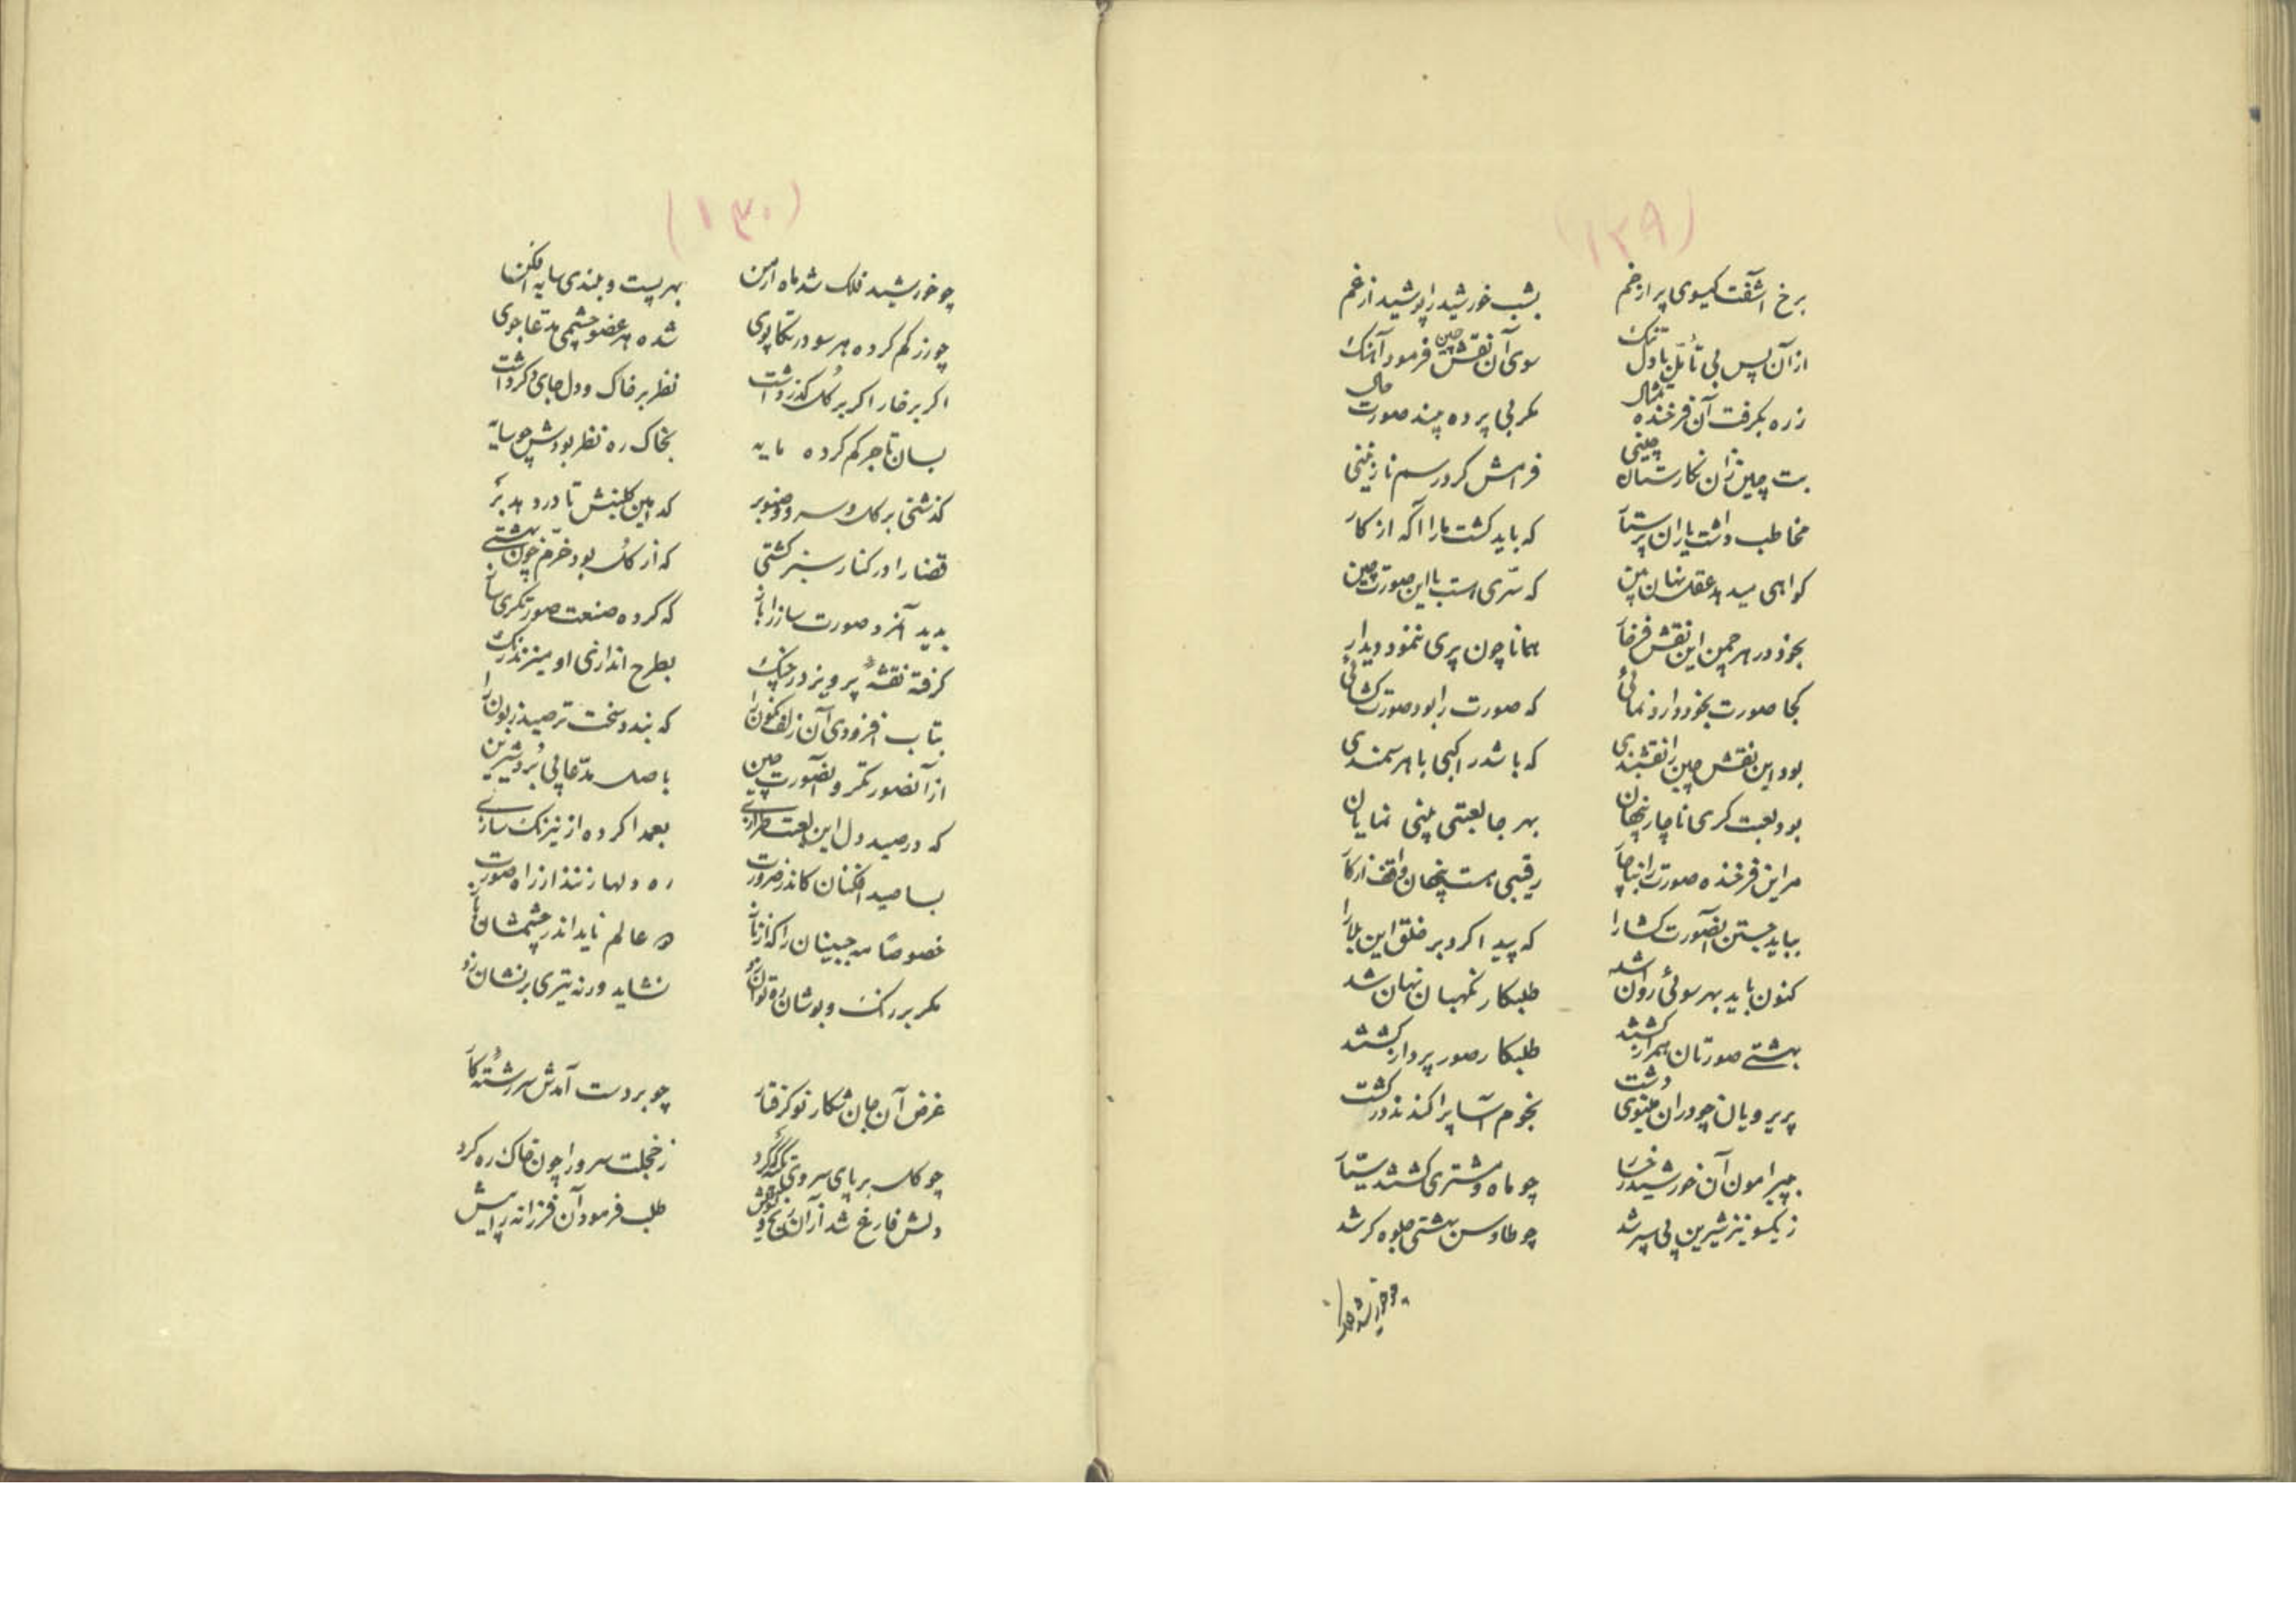 (١٢٩)
برخ آشفت گیسوی پر از خم بشب خورشید را پوشید از غم
از آن پس بی تأمل با دل تنک سوی آن نقش چین فرمود آهنک
ز ره بگرفت آن فرخنده تمثال مگر بی پرده بیند صورت حال
بت چین زان نگارستان چینی فرامش کرد رسم نازنینی
مخاطب داشت یاران پرستار که باید گشت ما را آگه از کار
گواهی میدهد عقل نهان بین که سری است با این صورت چین
بخود در هر چمن این نقش فرخار همانا چون پری ننمود دیدار
کجا صورت بخود دارد نمائی که صورت را بود صورت گشائی
بود این نقش چین را نقشبندی که باشد راکبی با هر سمندی
بود لعبت گری ناچار پنهان بهر جا لعبتی بینی نمایان
مر این فرخنده صورت را بناچار رقیبی هست پنهان واقف از کار
بباید جستن آنصورت گشا را که پیدا کرد بر خلق این بلا را
کنون باید بهر سوئی روان شد طلبکار نگهبان نهان شد
بهشتی صورتان همراز گشتند طلبکار صور پرداز گشتند
پریرویان چو در آن مینوی دشت نجوم آسا پراکندند در گشت
به پیرامون آن خورشید رخسار چو ماه و مشتری گشتند سیار
ز یکسو نیز شیرین پی سپر شد چو طاوس بهشتی جلوه گر شد
چو خورشید فلک
(١٣٠)
چو خورشید فلک شد ماه ارمن بهر پست و بلندی سایه افکن
چو زر گم کرده هر سو در تکاپوی شده هر عضو چشمی مدعا جوی
اگر بر خار اگر بر گل گذر داشت نظر بر خاک و دل جای دگر داشت
بسان تاجر گم کرده مایه بخاک ره نظر بودش چو سایه
گذشتی بر گل و سرو و صنوبر که این گلبنش تا درد دهد بر
قضا را در کنار سبز کشتی که از گل بود خرم چون بهشتی
بدید آنمرد صورت ساز را باز که کرده صنعت صورتگری ساز
گرفته نقشه پرویز در چنک بطرح اندازی او میزند رنک
بتاب افزودی آن زلف نگون را که بندد سخت تر صید زبون را
از آنصورتگر و آنصورت چین باصل مدعا پی برد شیرین
که در صید دل این لعبت طرازی بعمدا کرده از نیرنک سازی
بسا صید افکنان کاندر ضرورت ره دلها زنند از راه صورت
خصوصا مه جبینان را که از ناز دو عالم ناید اندر چشمشان باز
مگر بر رنک و بوشان رو توان زد نشاید ورنه تیری بر نشان زد
غرض آن جان شکار نو گرفتار چو بر دست آمدش سر رشته کار
چو گل بر پای سروی تکیه گه کرد ز خجلت سرو را چون خاک ره کرد
دلش فارغ شد از آن رنج و طلب فرمود آن فرزانه را پیش